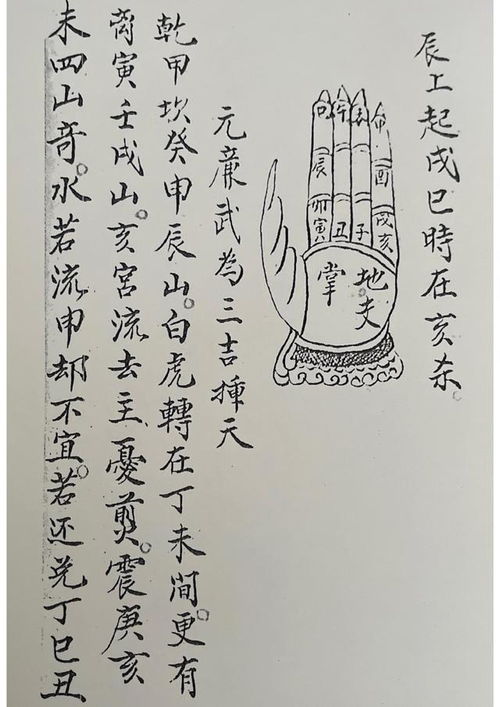 辰上起戌巳時在亥杀。
巳午未申
辰酉
卯寅丑子戌亥
地支
掌
元武為三吉天
乾甲坎癸申辰山。白虎轉在丁未間。更有
离寅壬戌山。亥宮流去主憂煎。震庚亥
未四山奇。水若流申却不宜。若还兑丁巳丑